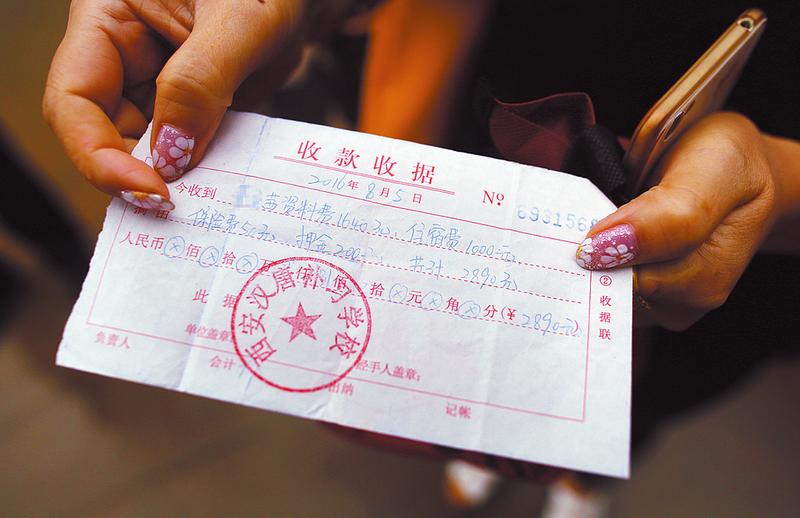 收款收据
2016年8月5日 № 6931568
今收到 资料费1640元、住宿费1000元
摘由 保险费50元 押金200元 共计 2890元
人民币⊗佰⊗拾⊗万 仟 佰 拾⊗元⊗角⊗分(￥2890元)
此据
②收据联
西安汉唐补习学校
单位盖章: 经手人盖章:
负责人 会计 出纳 记帐